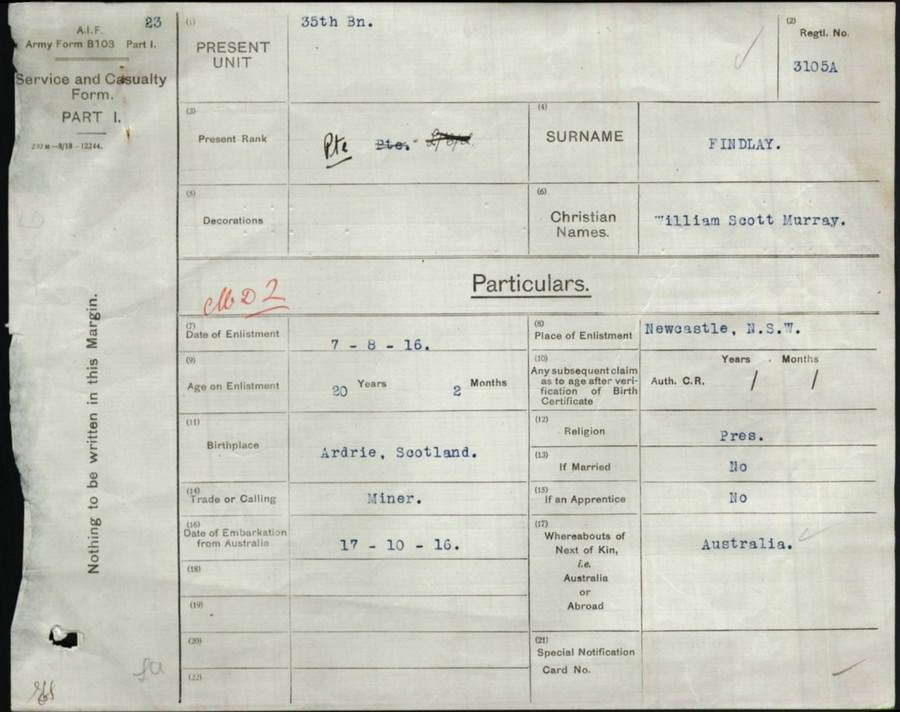 A.I.F. 23
Army Form B103 Part I.
Service and Casualty
Form.
PART I.
(1)
PRESENT
UNIT
35th Bn.
(2)
Regtl. No.
3105A
(3)
Present Rank
Pte Pte.
(4)
SURNAME
FINDLAY.
(5)
Decorations
(6)
Christian
Names.
William Scott Murray.
Particulars.
MD2
(7)
Date of Enlistment
7 - 8 - 16.
(8)
Place of Enlistment
Newcastle, N.S.W.
(9)
Age on Enlistment
20 Years 2 Months
(10)
Any subsequent claim
as to age after veri-
fication of Birth
Certificate
Years Months
Auth. C.R. / /
(11)
Birthplace
Ardrie, Scotland.
(12)
Religion
Pres.
(13)
If Married
No
(14)
Trade or Calling
Miner.
(15)
If an Apprentice
No
(16)
Date of Embarkation
from Australia
17 - 10 - 16.
(17)
Whereabouts of
Next of Kin,
i.e.
Australia
or
Abroad
Australia.
(18)
(19)
(20)
(21)
Special Notification
Card No.
(22)
Nothing to be written in this Margin.